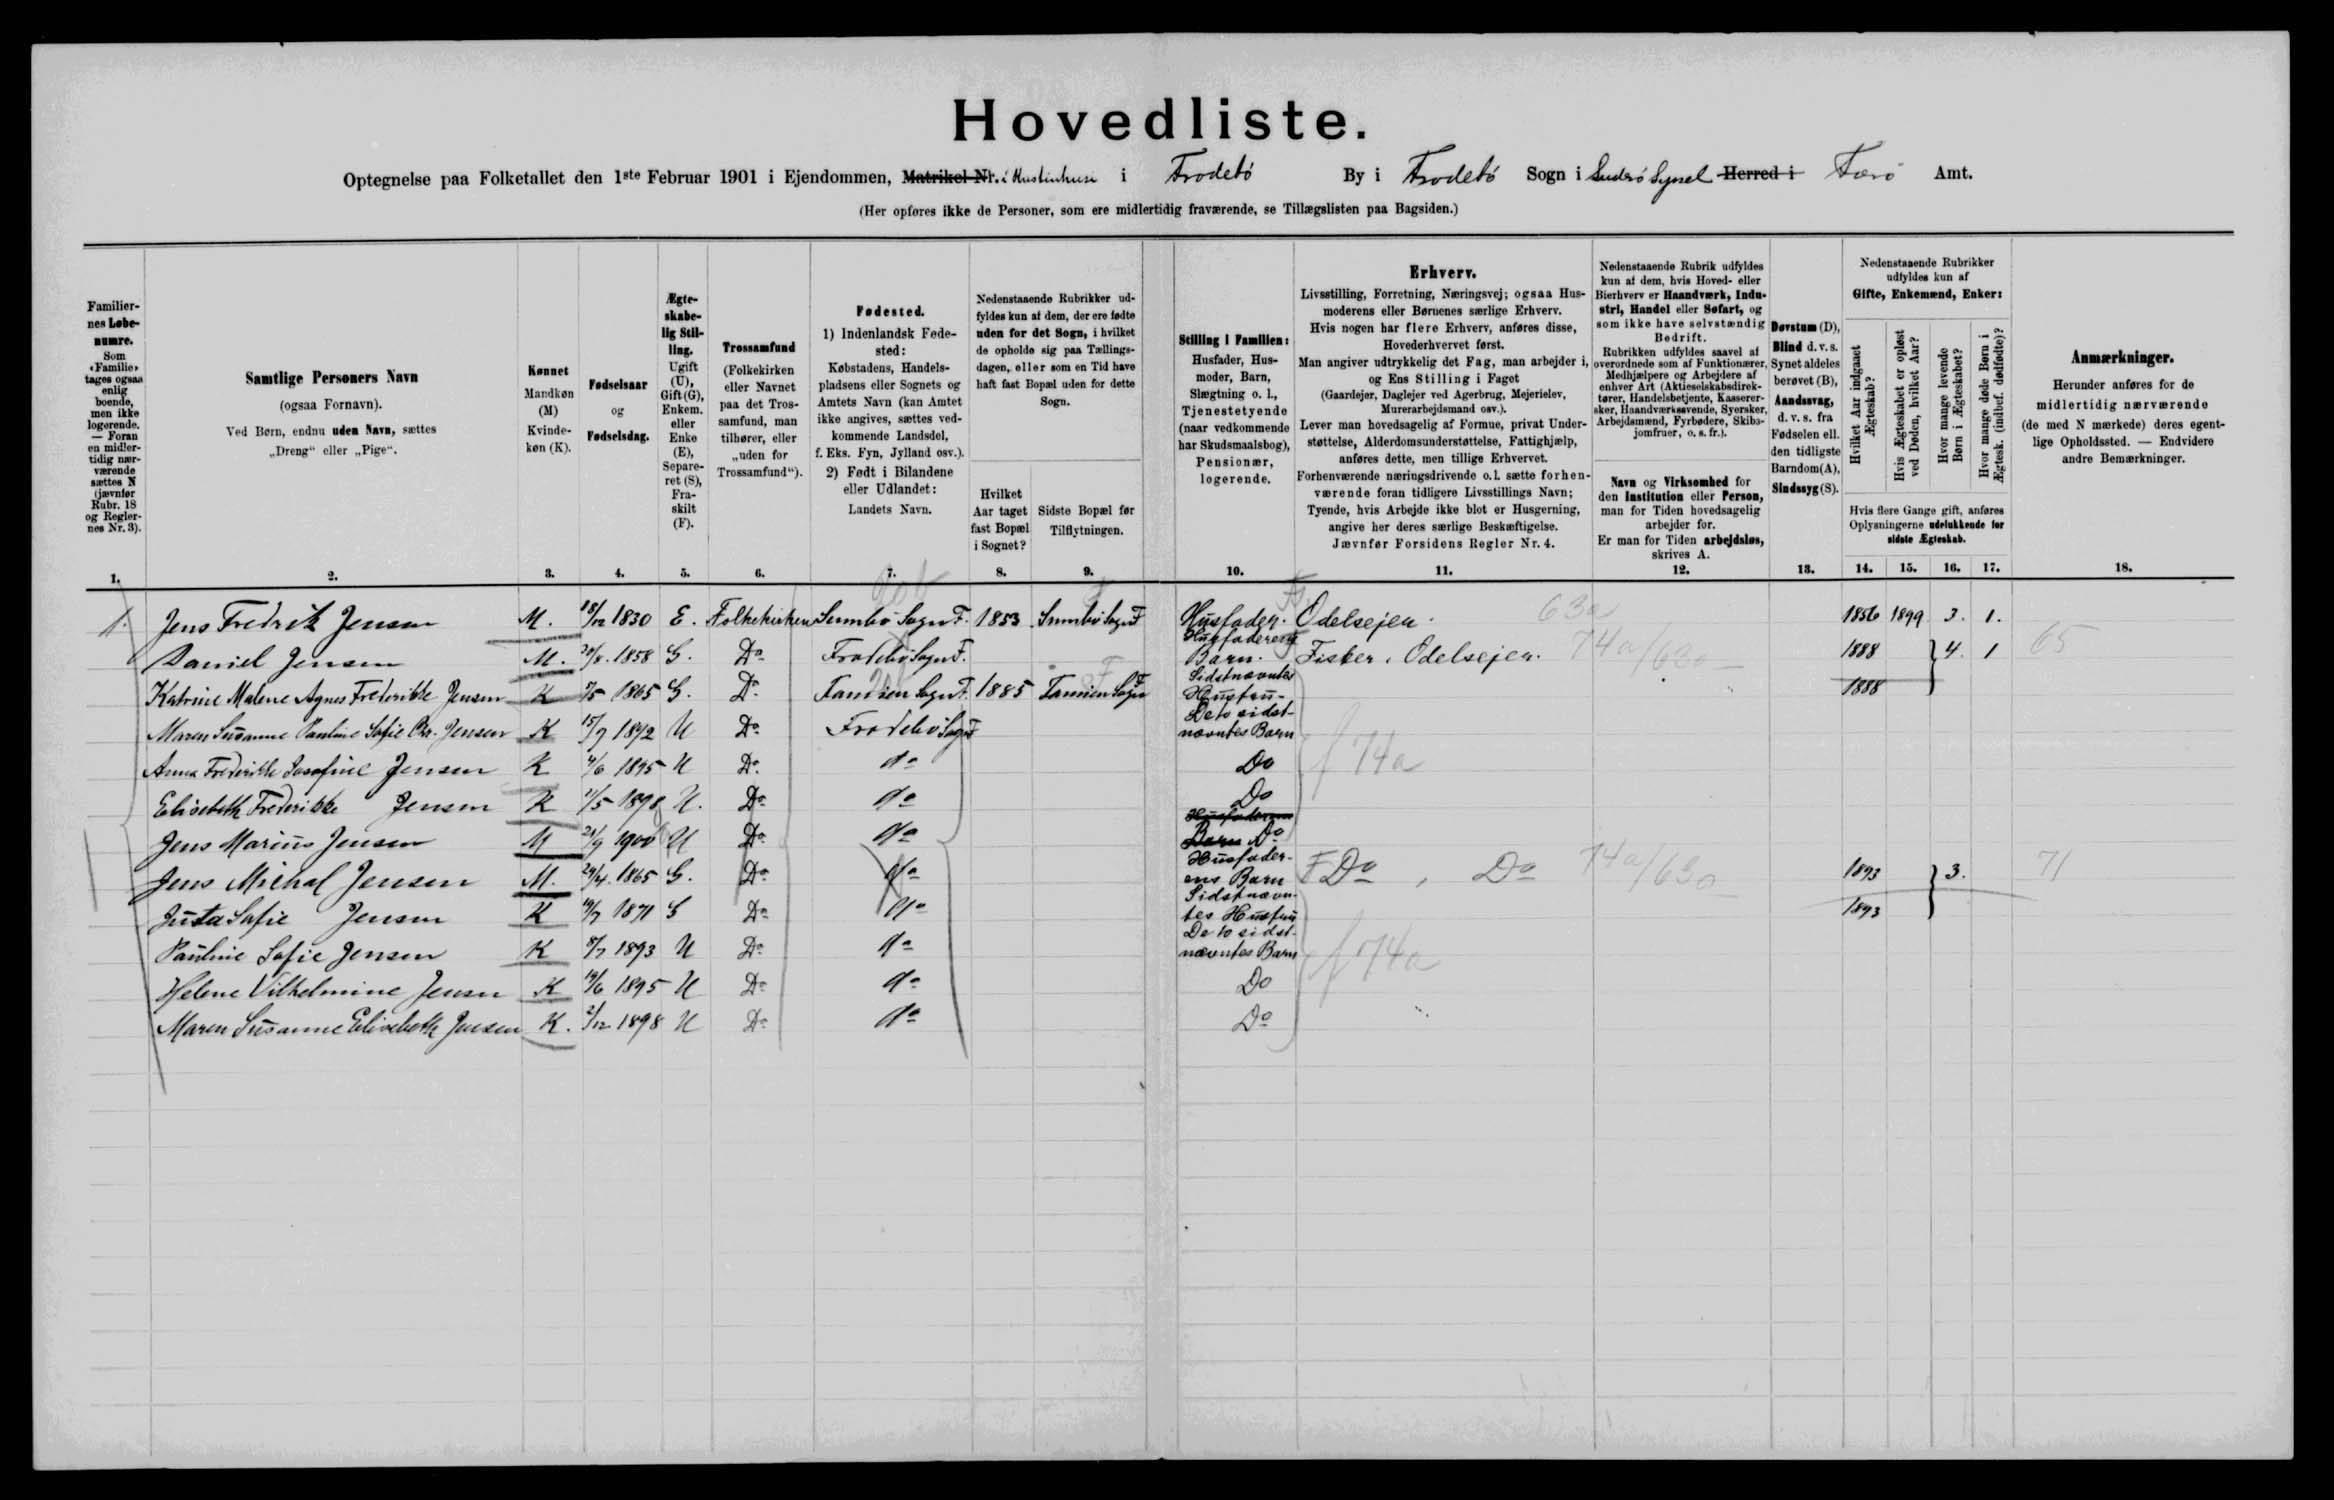 Hovedliste.
Optegnelse paa Folketallet den 1ste Februar 1901 i Ejendommen, Matrikel Nr. i Hustinhuse i Frodebø By i Frodebø Sogn i Suderø Syssel Herred i Færø Amt.
(Her opføres ikke de Personer, som ere midlertidig fraværende, se Tillægslisten paa Bagsiden.)
Familiernes Løbenumre.
Som «Familie» tages ogsaa enlig boende, men ikke logerende. — Foran en midlertidig nærværende sættes N (jævnfør Rubr. 18 og Reglernes Nr. 3).
1.
Samtlige Personers Navn
(ogsaa Fornavn).
Ved Børn, endnu uden Navn, sættes
„Dreng“ eller „Pige“.
2.
Kønnet
Mandkøn (M)
Kvindekøn (K).
3.
Fødselsaar
og
Fødselsdag.
4.
Ægteskabelig Stilling.
Ugift (U), Gift (G), Enkem. eller Enke (E), Separeret (S), Fraskilt (F).
5.
Trossamfund
(Folkekirken eller Navnet paa det Trossamfund, man tilhører, eller „uden for Trossamfund“).
6.
Fødested.
1) Indenlandsk Fødested:
Købstadens, Handelspladsens eller Sognets og Amtets Navn (kan Amtet ikke angives, sættes vedkommende Landsdel, f. Eks. Fyn, Jylland osv.).
2) Født i Bilandene eller Udlandet:
Landets Navn.
7.
Nedenstaaende Rubrikker udfyldes kun af dem, der ere fødte uden for det Sogn, i hvilket de opholde sig paa Tællingsdagen, eller som en Tid have haft fast Bopæl uden for dette Sogn.
Hvilket Aar taget fast Bopæl i Sognet?
8.
Sidste Bopæl før Tilflytningen.
9.
Stilling i Familien:
Husfader, Husmoder, Barn, Slægtning o. l., Tjenestetyende (naar vedkommende har Skudsmaalsbog), Pensionær, logerende.
10.
Erhverv.
Livsstilling, Forretning, Næringsvej; ogsaa Husmoderens eller Børnenes særlige Erhverv.
Hvis nogen har flere Erhverv, anføres disse, Hovederhvervet først.
Man angiver udtrykkelig det Fag, man arbejder i, og Ens Stilling i Faget
(Gaardejer, Daglejer ved Agerbrug, Mejerielev, Murerarbejdsmand osv.).
Lever man hovedsagelig af Formue, privat Understøttelse, Alderdomsunderstøttelse, Fattighjælp, anføres dette, men tillige Erhvervet.
Forhenværende næringsdrivende o. l. sætte forhenværende foran tidligere Livsstillings Navn;
Tyende, hvis Arbejde ikke blot er Husgerning, angive her deres særlige Beskæftigelse.
Jævnfør Forsidens Regler Nr. 4.
11.
Nedenstaaende Rubrik udfyldes kun af dem, hvis Hoved- eller Bierhverv er Haandværk, Industri, Handel eller Søfart, og som ikke have selvstændig Bedrift.
Rubrikken udfyldes saavel af overordnede som af Funktionærer, Medhjælpere og Arbejdere af enhver Art (Aktieselskabsdirektører, Handelsbetjente, Kasserersker, Haandværkssvende, Syersker, Arbejdsmænd, Fyrbødere, Skibsjomfruer, o. s. fr.).
Navn og Virksomhed for den Institution eller Person, man for Tiden hovedsagelig arbejder for.
Er man for Tiden arbejdsløs, skrives A.
12.
Døvstum (D), Blind d. v. s. Synet aldeles berøvet (B), Aandssvag, d. v. s. fra Fødselen ell. den tidligste Barndom (A), Sindssyg (S).
13.
Nedenstaaende Rubrikker udfyldes kun af
Gifte, Enkemænd, Enker:
Hvilket Aar indgaaet Ægteskab?
Hvis Ægteskabet er opløst ved Døden, hvilket Aar?
Hvor mange levende Børn i Ægteskabet?
Hvor mange døde Børn i Ægtesk. (indbef. dødfødte)?
Hvis flere Gange gift, anføres Oplysningerne udelukkende for sidste Ægteskab.
14. 15. 16. 17.
Anmærkninger.
Herunder anføres for de midlertidig nærværende (de med N mærkede) deres egentlige Opholdssted. — Endvidere andre Bemærkninger.
18.
1. Jens Fredrik Jensen M. 18/12 1830 E. Folkekirken Sumbø Sogn F. 1853 Sumbø Sogn F Husfader. Odelsejer. 63a 1856 1899 3. 1.
Daniel Jensen M. 20/8. 1858 G. Do Frodebø Sogn F. Husfaderens Barn. Fisker, Odelsejer. 74a/63a 1888 4. 1 65
Katrine Malene Agnes Frederikke Jensen K 7/5 1865 G. Do Famien Sogn F. 1885 Famien Sogn F Sidstnævntes Hustru 1888
Maren Susanne Pauline Sofie Chr. Jensen K 15/9 1892 U Do Frodebø Sogn F De to sidstnævntes Barn f 74a
Anna Frederikke Josefine Jensen K 4/6 1895 U Do do Do
Elisebeth Frederikke Jensen K 11/5 1898 U. Do do Do
Jens Marius Jensen M 21/9 1900 U Do do Husfaderens Barn Do
Jens Michal Jensen M. 29/4. 1865 G. Do do Husfaderens Barn F Do, Do 74a/63a 1893 3. 71
Justa Sofie Jensen K 19/7 1871 G Do do Sidstnævntes Hustru 1893
Pauline Sofie Jensen K 8/7 1893 U Do do De to sidstnævntes Barn f 74a
Helene Vilhelmine Jensen K 19/6 1895 U Do do Do
Maren Susanne Elisebeth Jensen K. 2/12 1898 U Do do Do